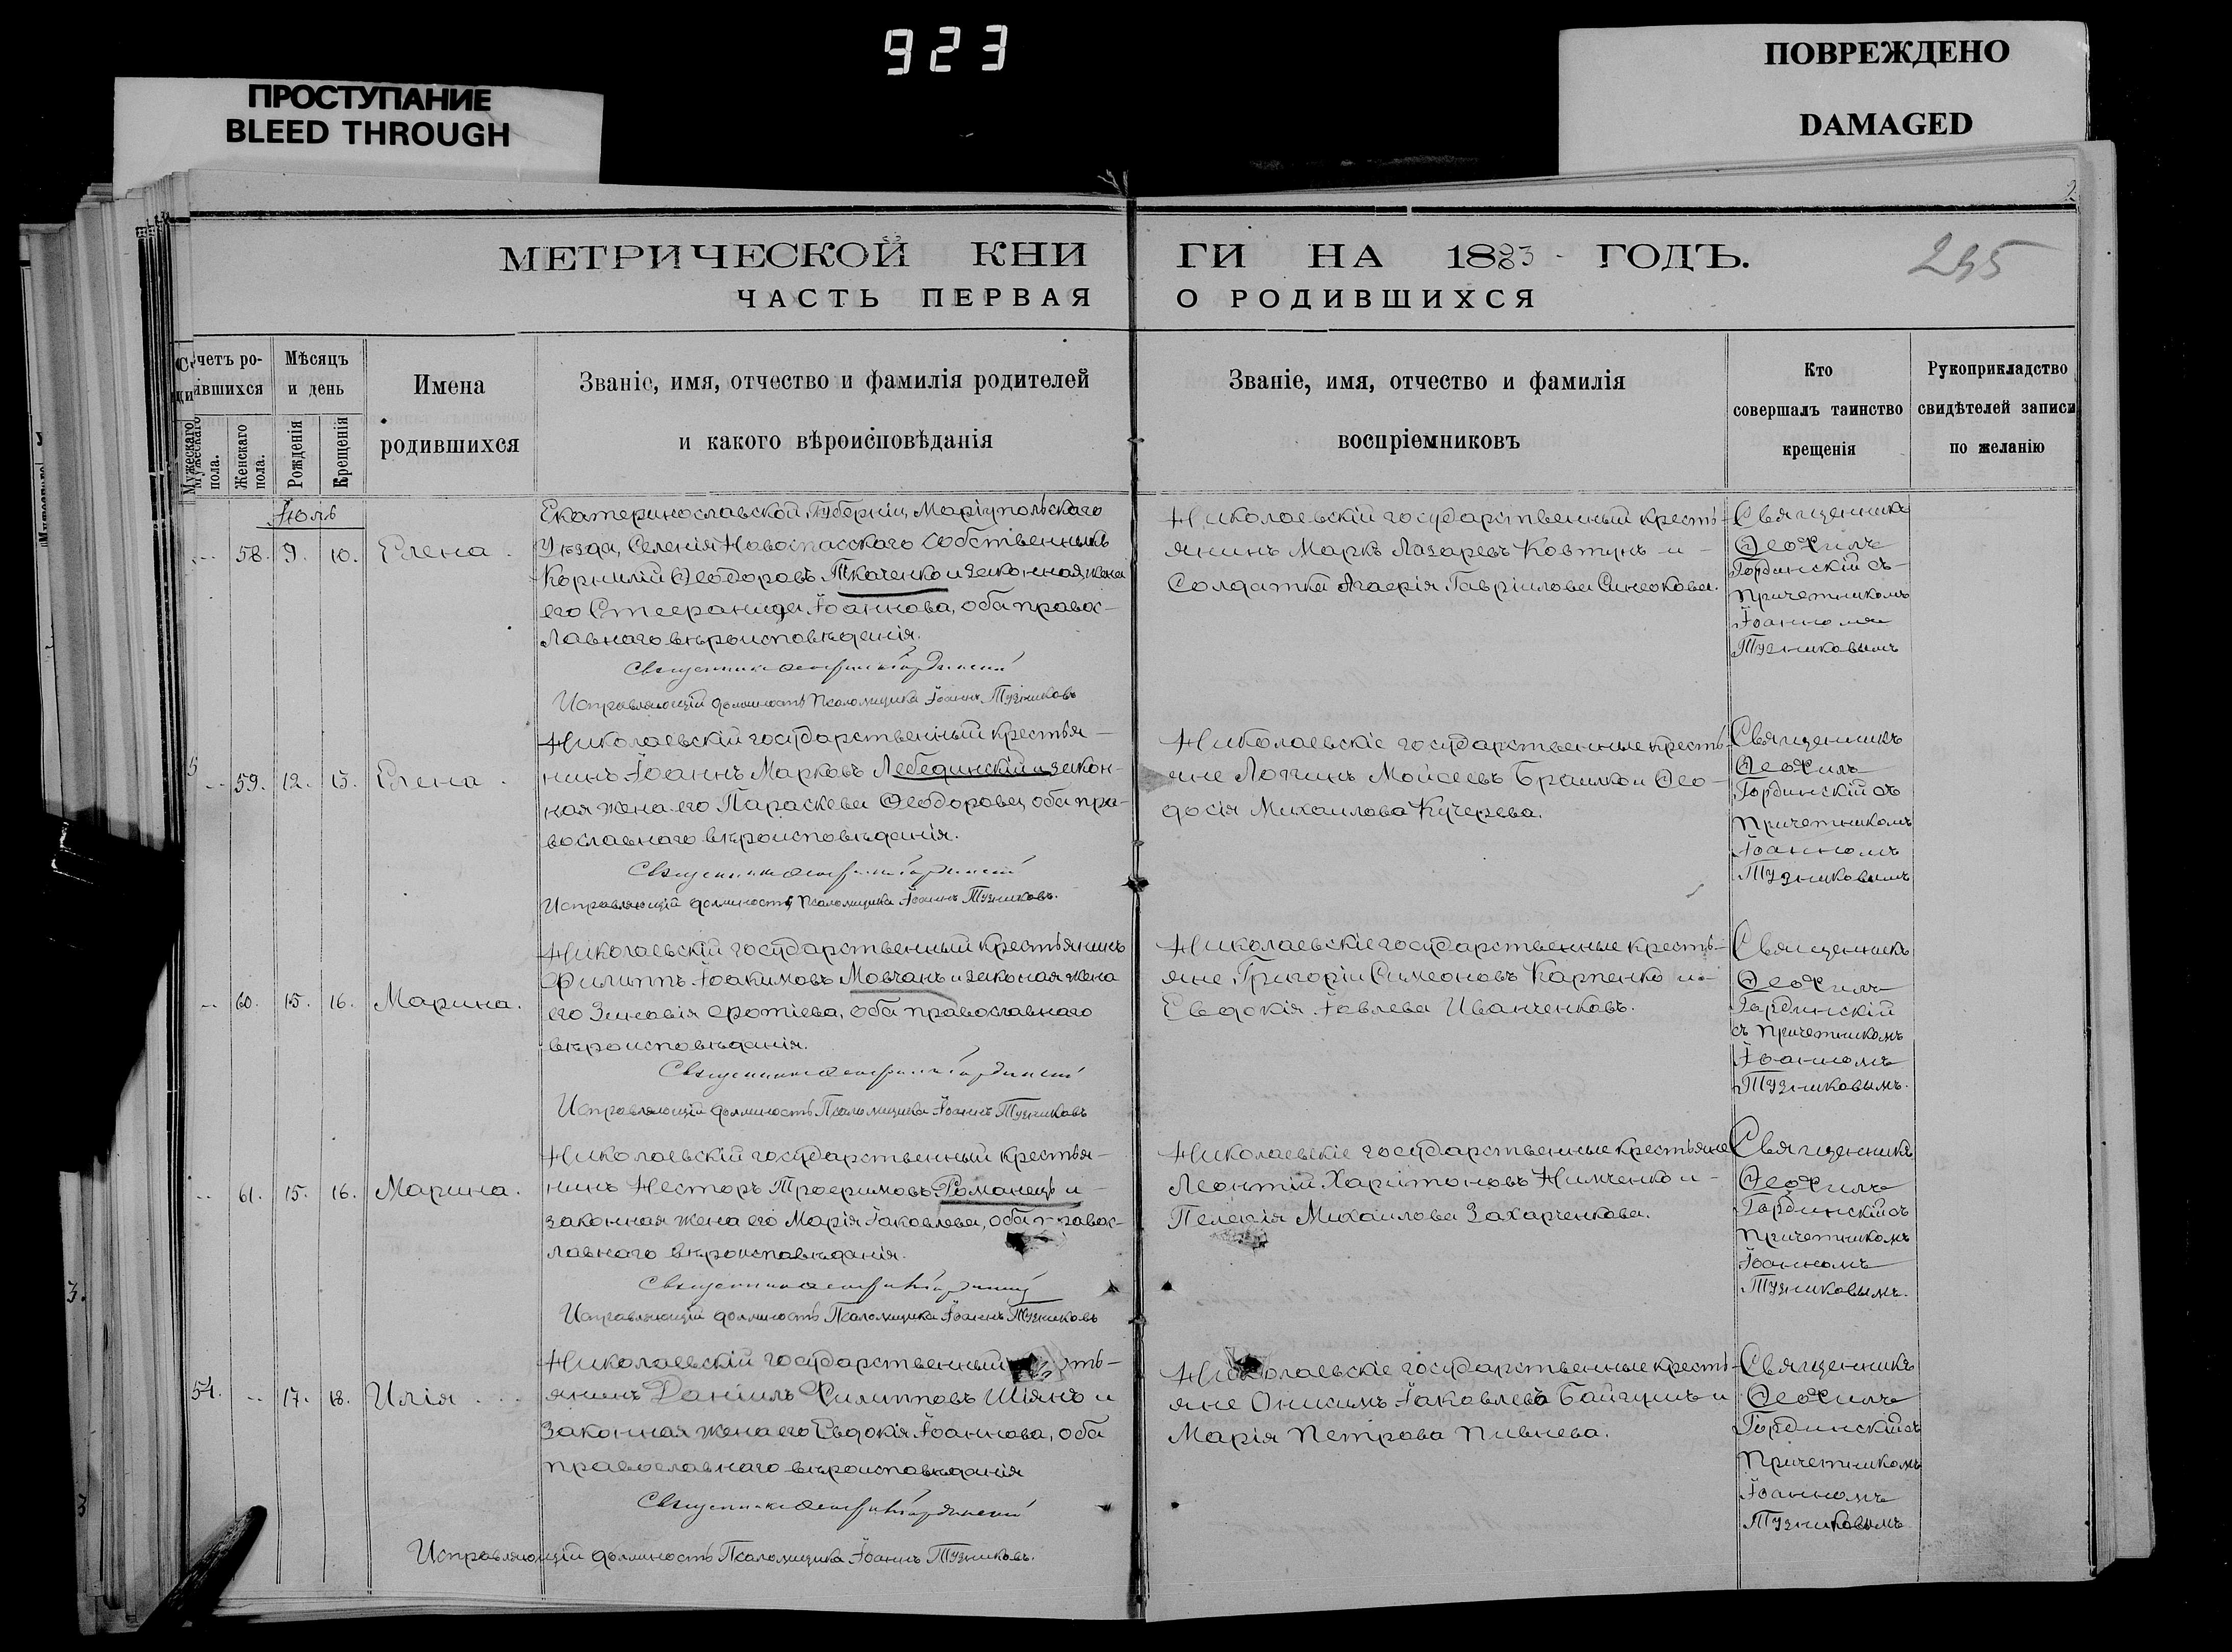 923
ПРОСТУПАНИЕ
BLEED THROUGH
ПОВРЕЖДЕНО
DAMAGED
МЕТРИЧЕСКОЙ КНИ ГИ НА 1883 ГОДЪ.
295
ЧАСТЬ ПЕРВАЯ О РОДИВШИХСЯ
Счетъ ро-
ившихся
Мужескаго пола.
Женскаго пола.
Мѣсяцъ
и день
Рожденія
Крещенія
Имена
родившихся
Званіе, имя, отчество и фамилія родителей
и какого вѣроисповѣданія
Званіе, имя, отчество и фамилія
воспріемниковъ
Кто
совершалъ таинство
крещенія
Рукоприкладство
свидѣтелей записи
по желанію
Іюль
58. 9. 10. Елена.
Екатеринославской Губерніи, Маріупольскаго
Уѣзда, Селенія Новоспасского Собственникъ
Корнилій Ѳеодоровъ Ткаченко и законная жена
его Стефанида Іоаннова, оба правос-
лавного вѣроисповѣданія.
Священникъ Ѳеофилъ Гординскій
Исправляющій должность Псаломщика Іоаннъ Тузниковъ
Николаевскій государственный кресть-
янинъ Маркъ Лазаревъ Ковтунъ и
Солдатка Агафія Гавріилова Синеокова.
Священникъ
Ѳеофилъ
Гординскій съ
Причетникомъ
Іоанномъ
Тузниковымъ
59. 12. 13. Елена.
Николаевскій государственный крестья-
нинъ Іоаннъ Марковъ Лебединскій и закон-
ная жена его Параскева Ѳеодорова, оба пра-
вославного вѣроисповѣданія.
Священникъ Ѳеофилъ Гординскій
Исправляющій должность Псаломщика Іоаннъ Тузниковъ.
Николаевскіе государственные кресть-
яне Логгинъ Мойсеевъ Брашко и Ѳео-
досія Михаилова Кучерева.
Священникъ
Ѳеофилъ
Гординскій съ
Причетникомъ
Іоанномъ
Тузниковымъ
60. 15. 16. Марина.
Николаевскій государственный крестьянинъ
Филиппъ Іоакимовъ Мовчанъ и законая жена
его Зиновія Фотіева, оба православного
вѣроисповѣданія.
Священникъ Ѳеофилъ Гординскій
Исправляющій должность Псаломщика Іоаннъ Тузниковъ
Николаевскіе государственные кресть-
яне Григорій Симеоновъ Карпенко и
Евдокія Іовлева Иванченковъ.
Священникъ
Ѳеофилъ
Гординскій
съ Причетникомъ
Іоанномъ
Тузниковымъ.
61. 15. 16. Марина.
Николаевскій государственный крестья-
нинъ Несторъ Трофимовъ Романецъ и
законная жена его Марія Іаковлева, оба правос-
лавного вѣроисповѣданія.
Священникъ Ѳеофилъ Гординскій
Исправляющій должность Псаломщика Іоаннъ Тузниковъ
Николаевскіе государственные крестьяне
Леонтій Харитоновъ Нимченко и
Пелагія Михаилова Захарченкова.
Священникъ
Ѳеофилъ
Гординскій съ
Причетникомъ
Іоанномъ
Тузниковымъ.
54. 17. 18. Илія
Николаевскій государственный кресть-
янинъ Даніилъ Филипповъ Шіянъ и
законная жена его Евдокія Іоаннова, оба
православного вѣроисповѣданія
Священникъ Ѳеофилъ Гординскій
Исправляющій должность Псаломщика Іоаннъ Тузниковъ.
Николаевскіе государственные кресть-
яне Онисимъ Іаковлевъ Байгушъ и
Марія Петрова Пивнева.
Священникъ
Ѳеофилъ
Гординскій съ
Причетникомъ
Іоанномъ
Тузниковымъ